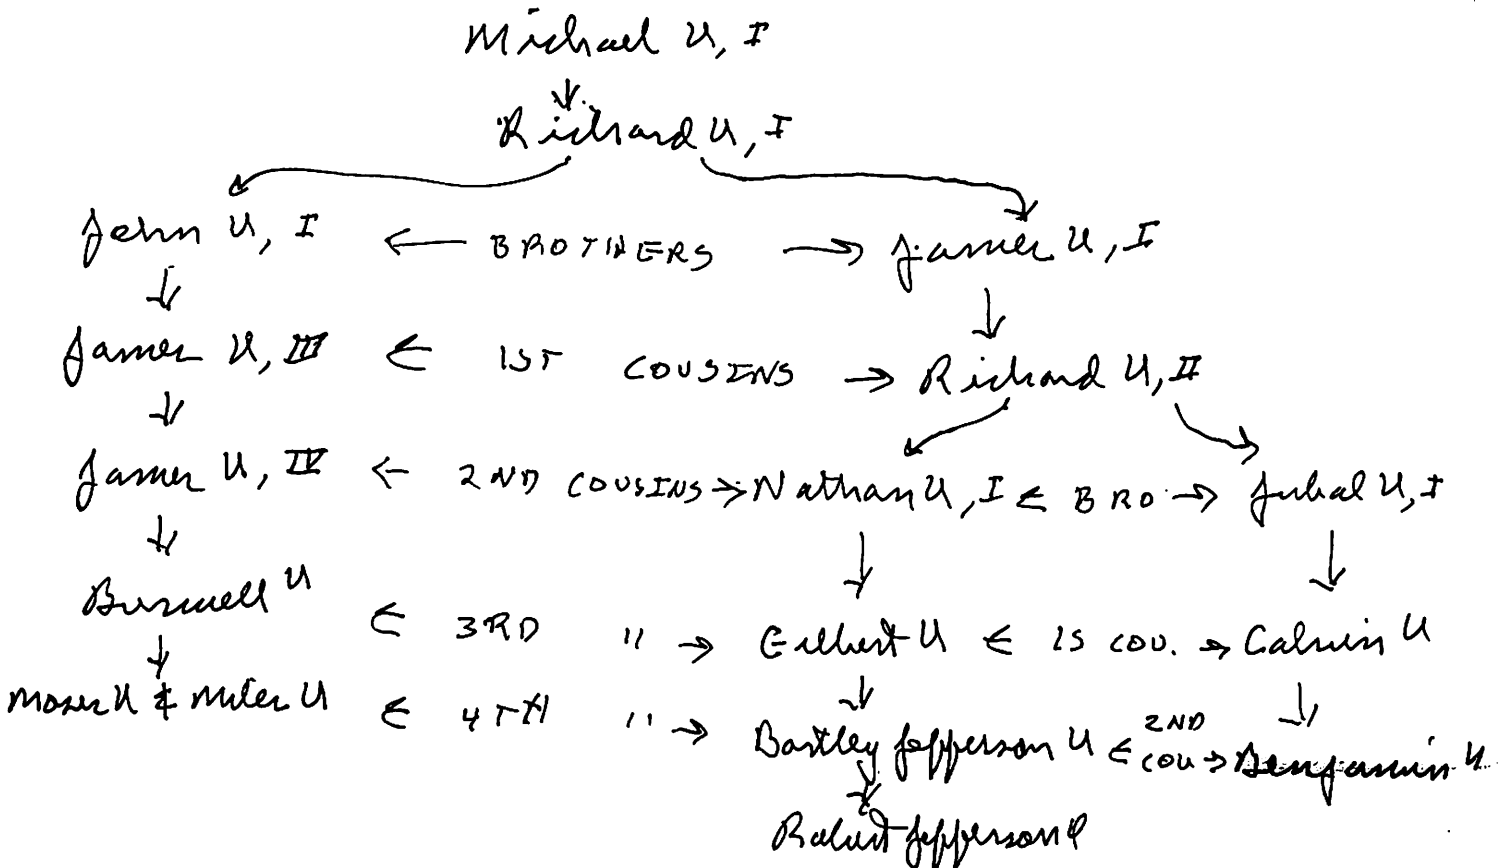 Michael U, I
Richard U, I
John U, I ← BROTHERS → James U, I
James U, III ← 1ST COUSINS → Richard U, II
James U, IV ← 2ND COUSINS → Nathan U, I ← BRO → Jubal U, I
Burwell U ← 3RD " → Gilbert U ← 1S COU. → Calvin U
Moses U & Miles U ← 4TH " → Bartley Jefferson U ← 2ND COU → Benjamin U
Robert Jefferson